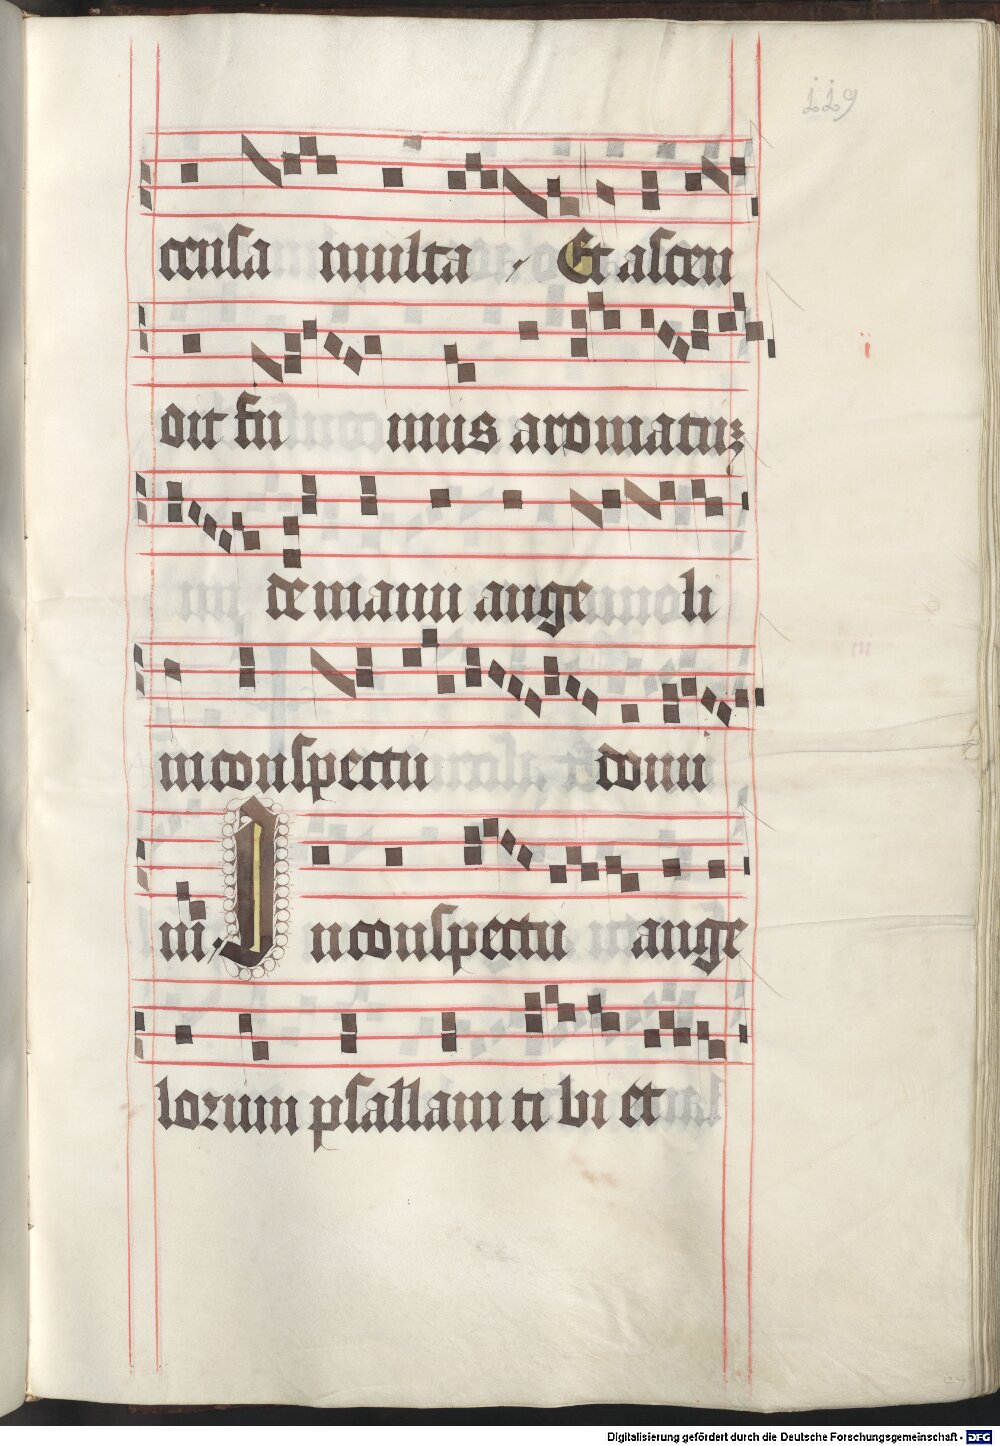 229
censa multa / Et ascen
dit fu mus aromatuꝫ
de manu ange li
in conspectu domi
ni / In conspectu ange
lorum psallam ti bi et
Digitalisierung gefördert durch die Deutsche Forschungsgemeinschaft - DFG